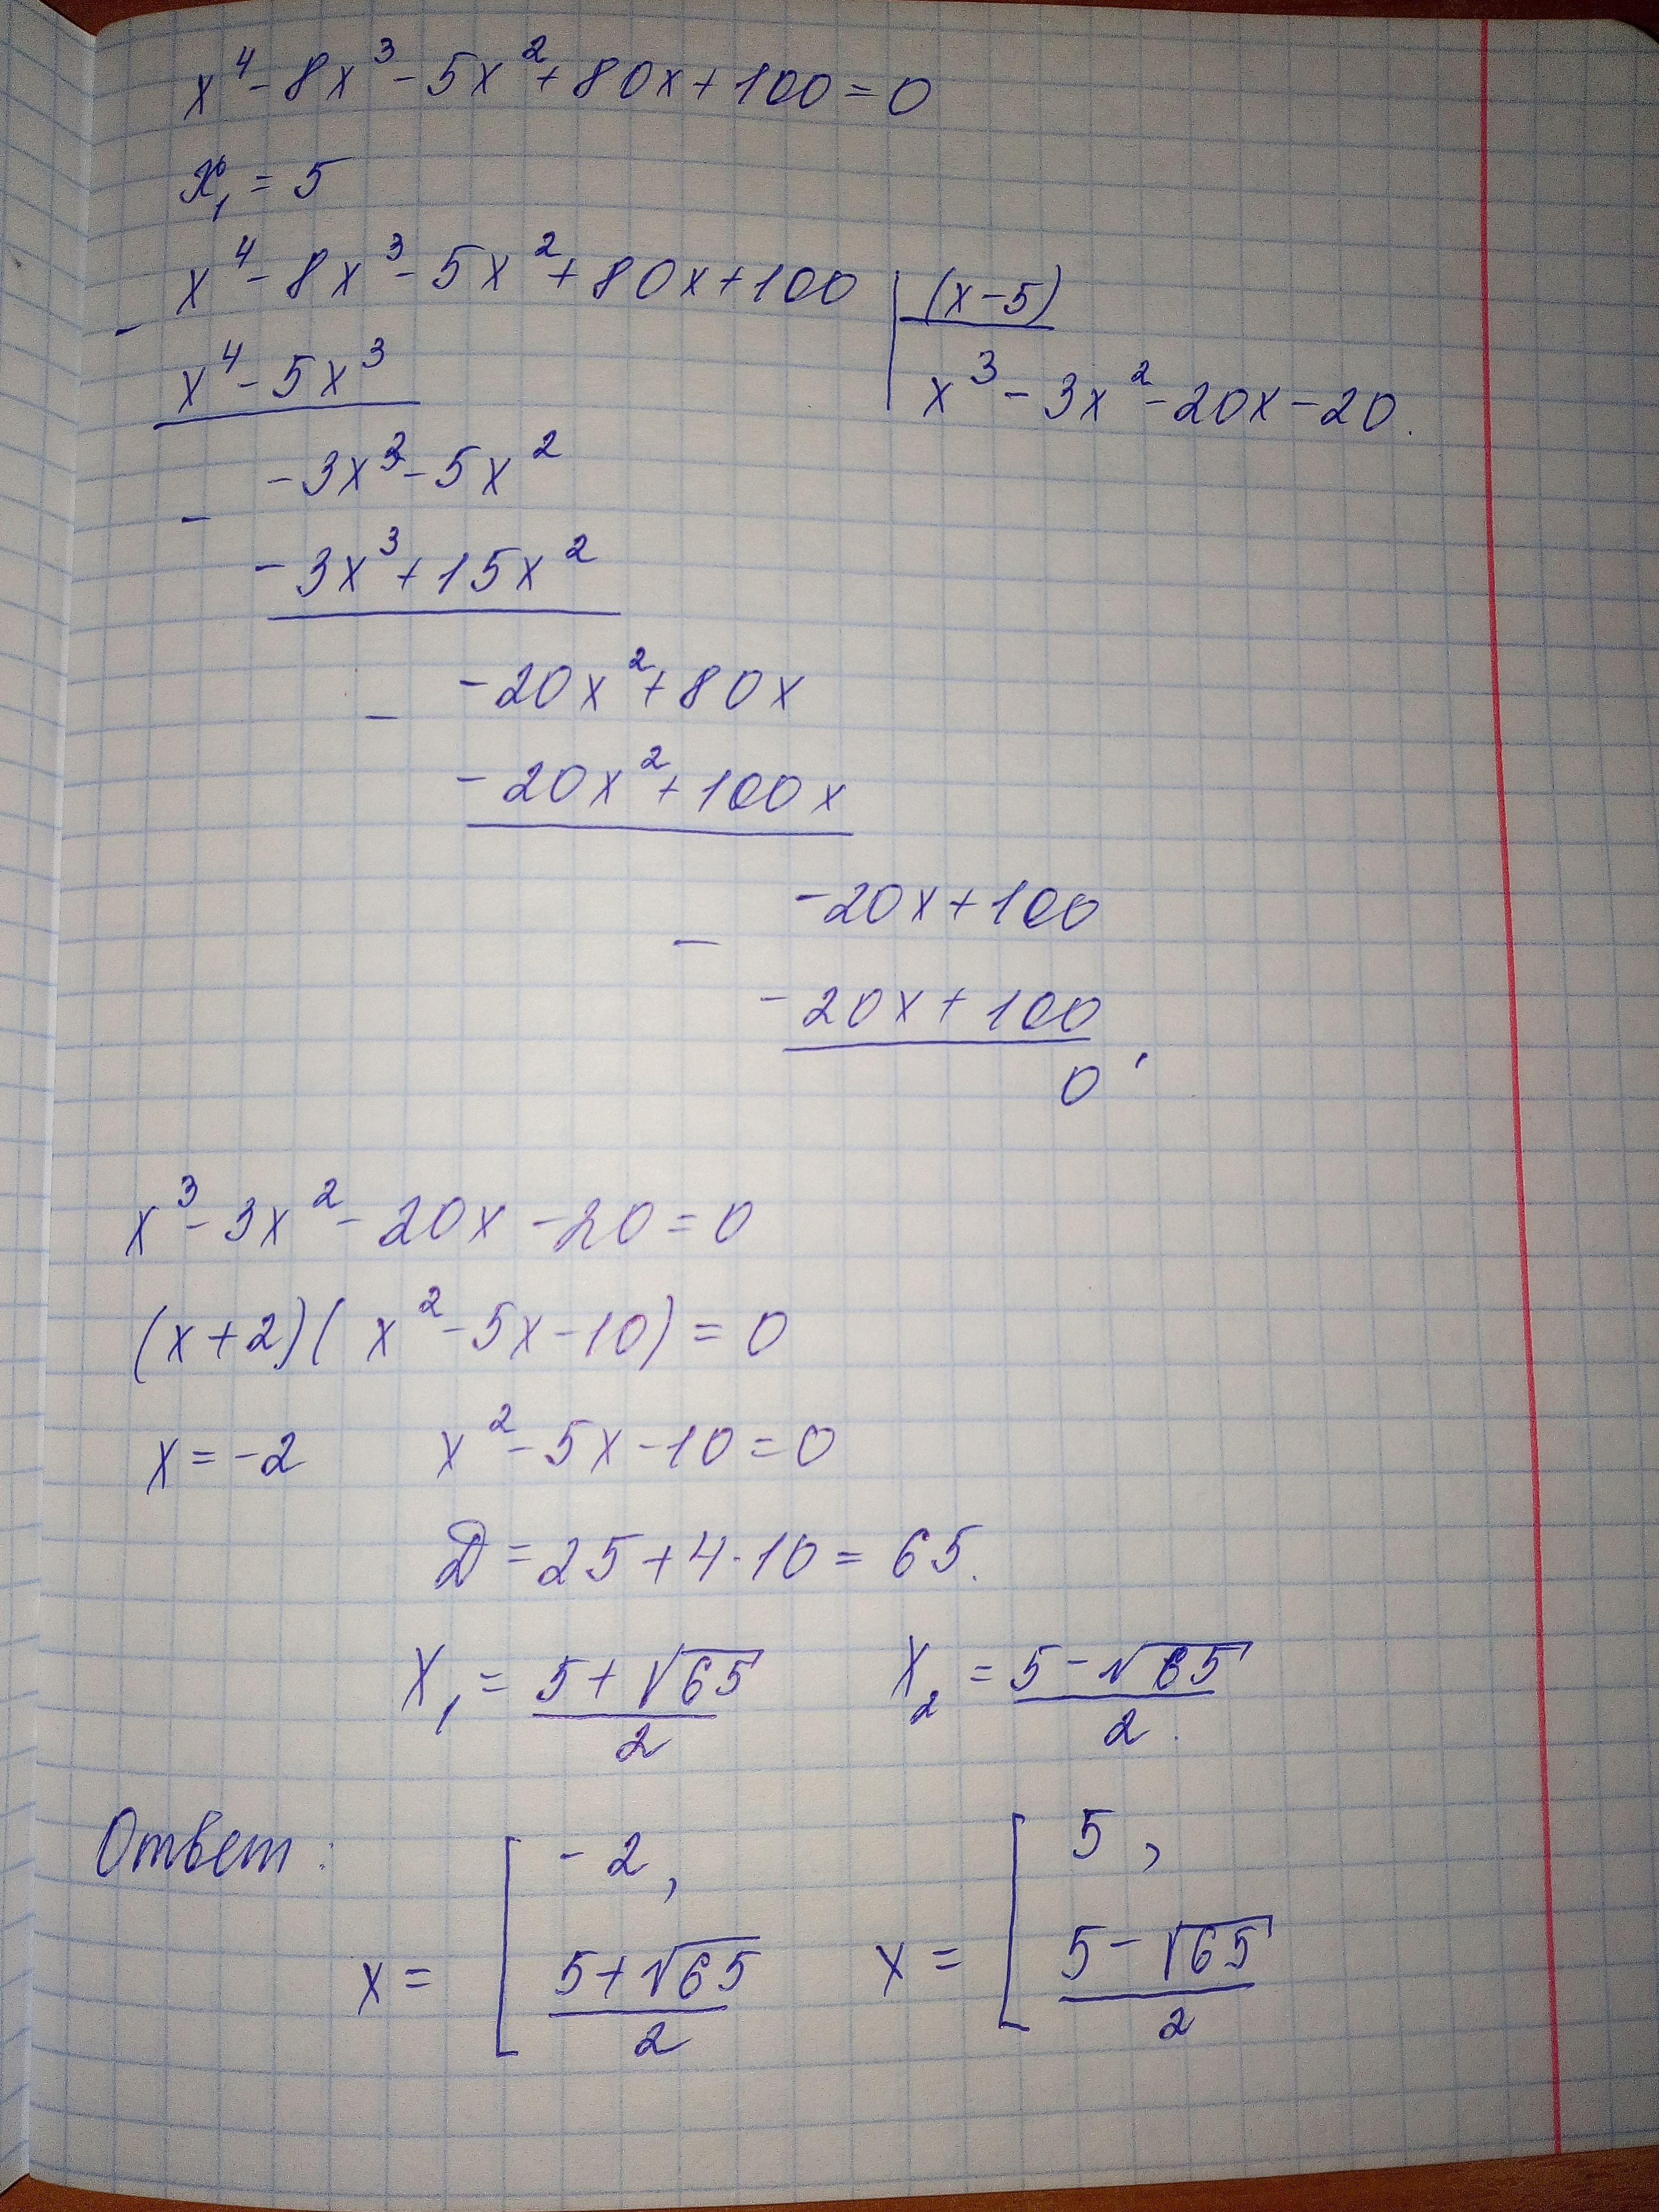 x⁴ - 8x³ - 5x² + 80x + 100 = 0
x₁ = 5
x⁴ - 8x³ - 5x² + 80x + 100 | (x - 5)
- x⁴ - 5x³ | x³ - 3x² - 20x - 20.
-3x³ - 5x²
- -3x³ + 15x²
-20x² + 80x
- -20x² + 100x
-20x + 100
- -20x + 100
0
x³ - 3x² - 20x - 20 = 0
(x + 2)(x² - 5x - 10) = 0
x = -2 x² - 5x - 10 = 0
D = 25 + 4·10 = 65.
x₁ = (5 + √65)/2 x₂ = (5 - √65)/2.
Ответ: x = [ -2, (5 + √65)/2 x = [ 5, (5 - √65)/2